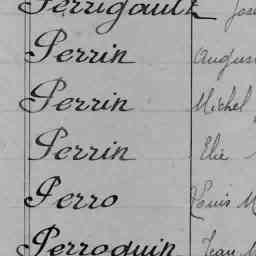 Perrigault
Perrin Augus
Perrin Michel
Perrin Elie
Perro Louis M
Perroquin Jean M